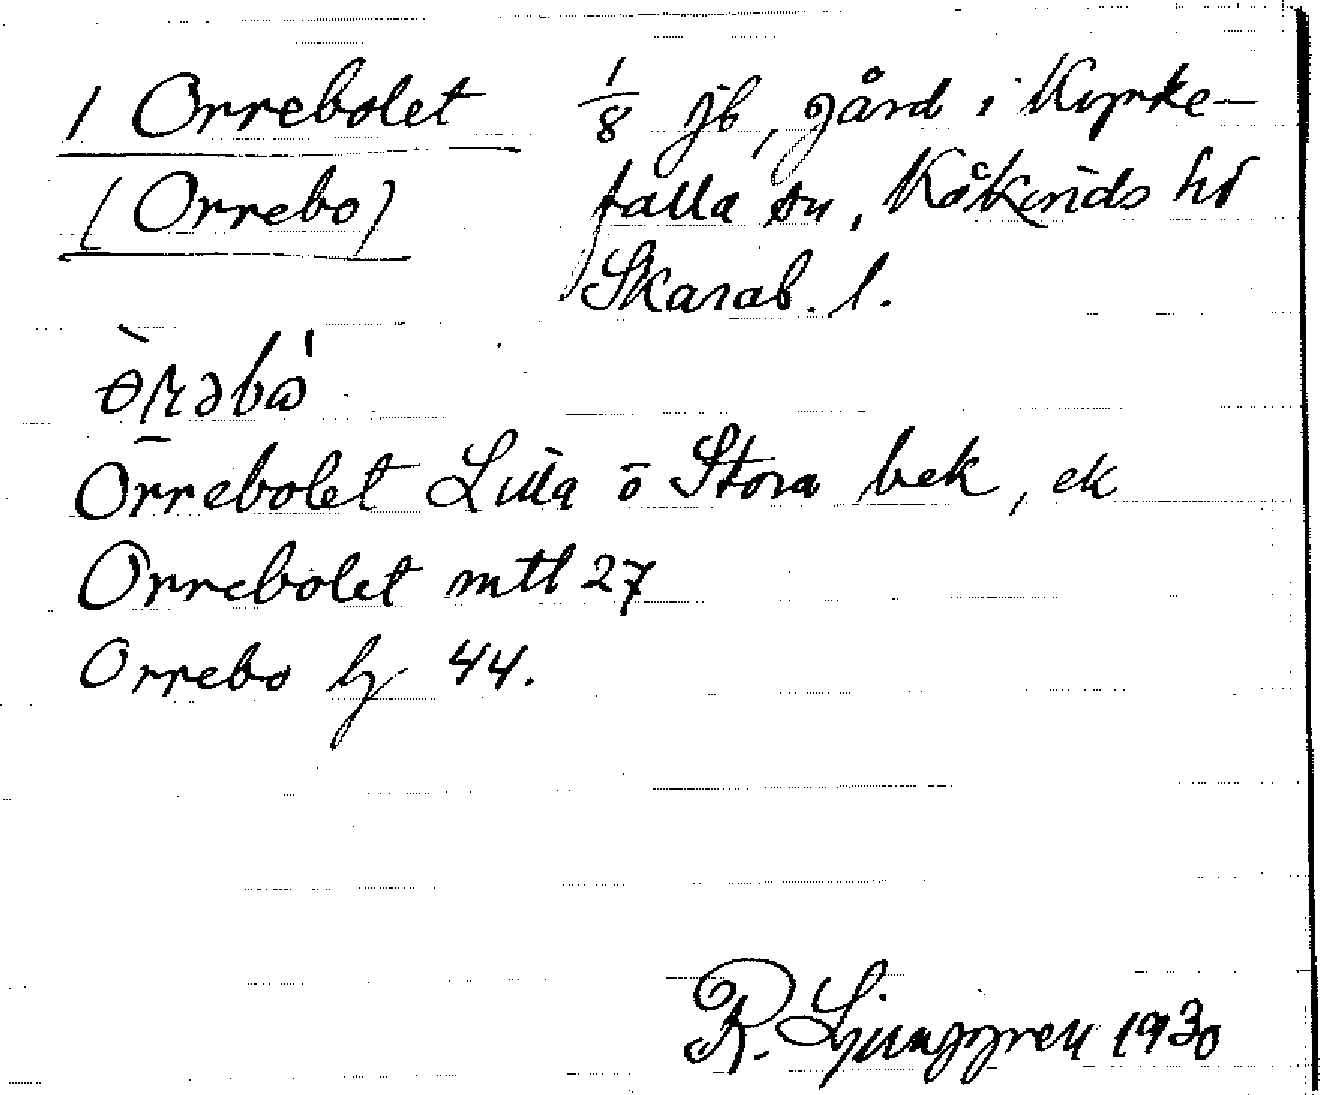 1 Orrebolet 1/8 jb, gård i Kyrke-
(Orrebo) falla sn, Kåkinds hd
Skarab. l.
Orrebolet Lilla o Stora bek, ek
Orrebolet mtl 27
Orrebo hf 44.
R. Ljunggren 1930